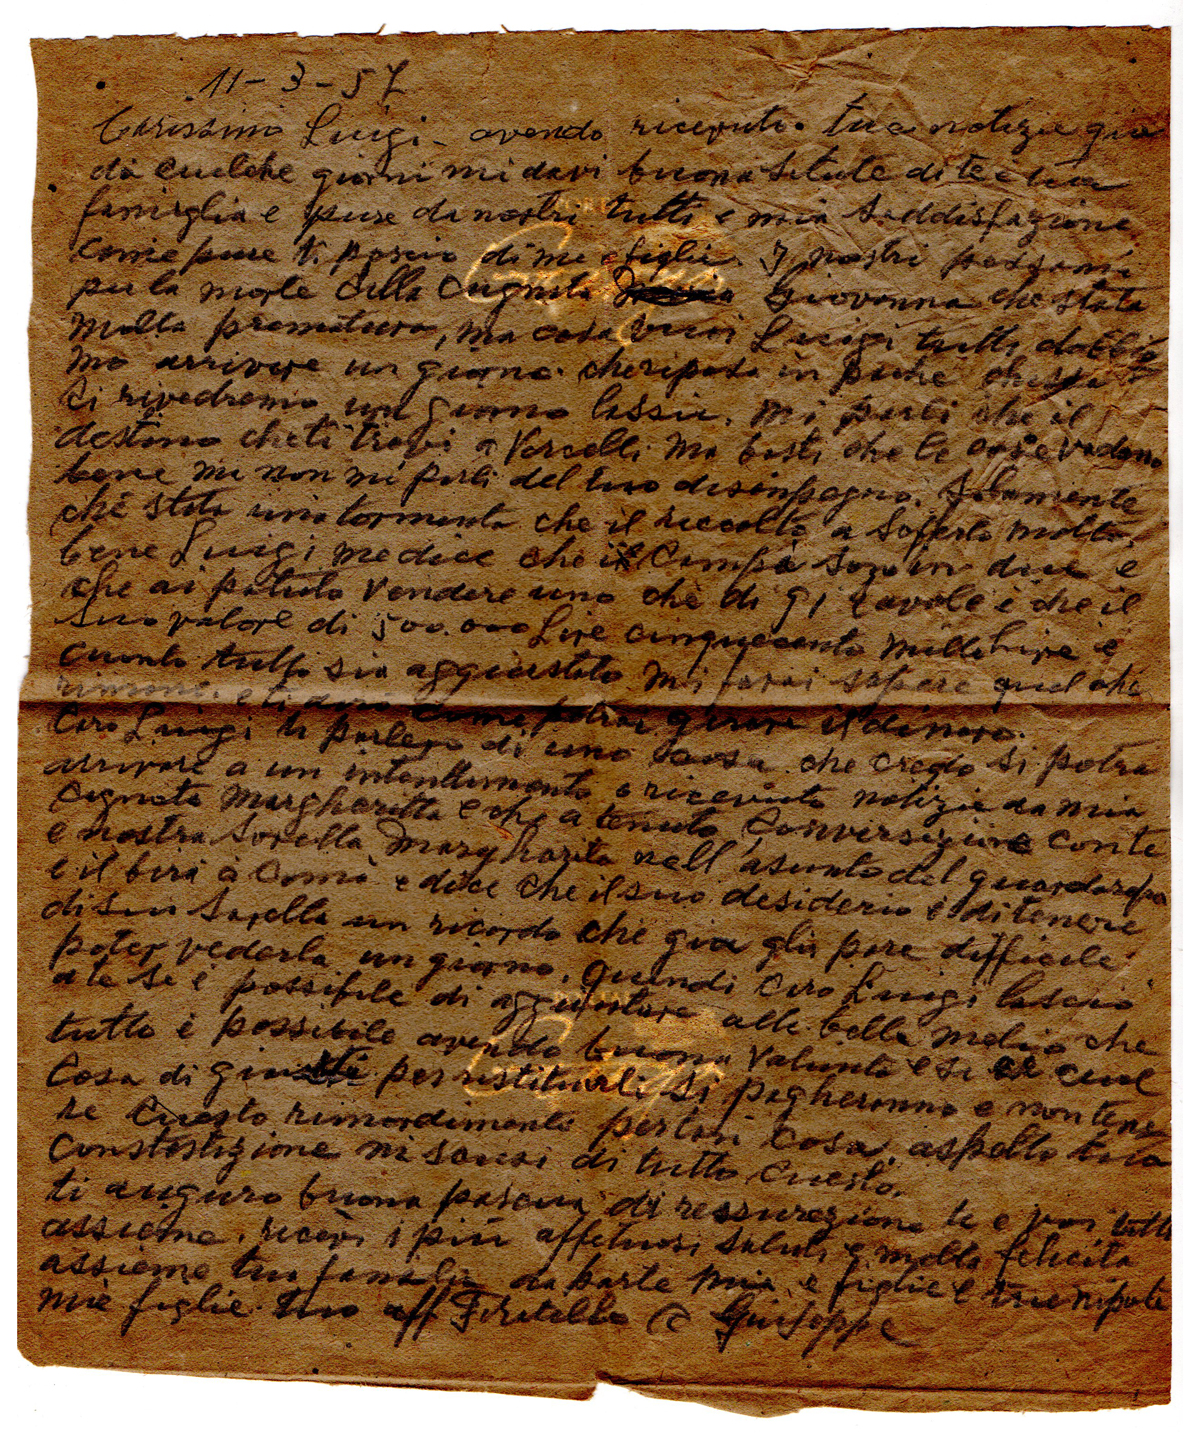 11-3-57
Carissimo Luigi avendo ricevuto tua notizie gia
da cuelche giorni mi davi buona salute di te e tua
famiglia e pure da nostri tutti e mia saddisfazione
come pure ti di me e figlie. I nostri
per la morte della cugnata Giovanna che stata
molta prematura, ma cosa vuoi Luigi tutti dobbia
mo arrivare un giorno che riposa in pache
ci rivedremo un giorno lassiu. Mi parli che il
destino che ti trovi a Vercelli ma basti che le cose vadano
bene ma non mi parli del tuo disinpegno. Solamente
che stata una tormenta che il raccolto a soferto molto.
bene Luigi me dice che i campi sono in due e
che ai potuto vendere uno che di 91 tavole e che il
suo valore di 500.000 Lire cinquecento mille Lire e
cuanto tutto sia aggiustato mi farai sapere quel che
rimane. e ti diro come potrai girare il dinaro.
Caro Luigi ti parlero di una cosa che credo si potra
arrivare a un intendimento o ricevuto notizie da mia
cugnata Margheritta e che a tenuto conversigione con te
e nostra sorella Margharita nell asunto del guardaropa
e il buro o comó e dice che il suo desiderio e di tenere
di sui sorella un ricordo che gia gli pare difficile
poter vederla un giorno. Quendi caro Luigi lascio
a te se e possibile di aggiustare alle belle medio che
tutto e possibile avendo buona valunta e si cual
cosa di per restituirli si pagheranno e non tene
re cuesto rimordimento per tari cosa, aspetto tua
constestigione mi di tutto cuesto.
ti auguro buona pascua di ressuregione te e voi tutti
assieme, ricevi i piu affetuosi saluti e molta felicita
assieme tua famalia da parte mia e figlie e tue nipoti
mie figlie tuo aff Fratello G Giuseppe